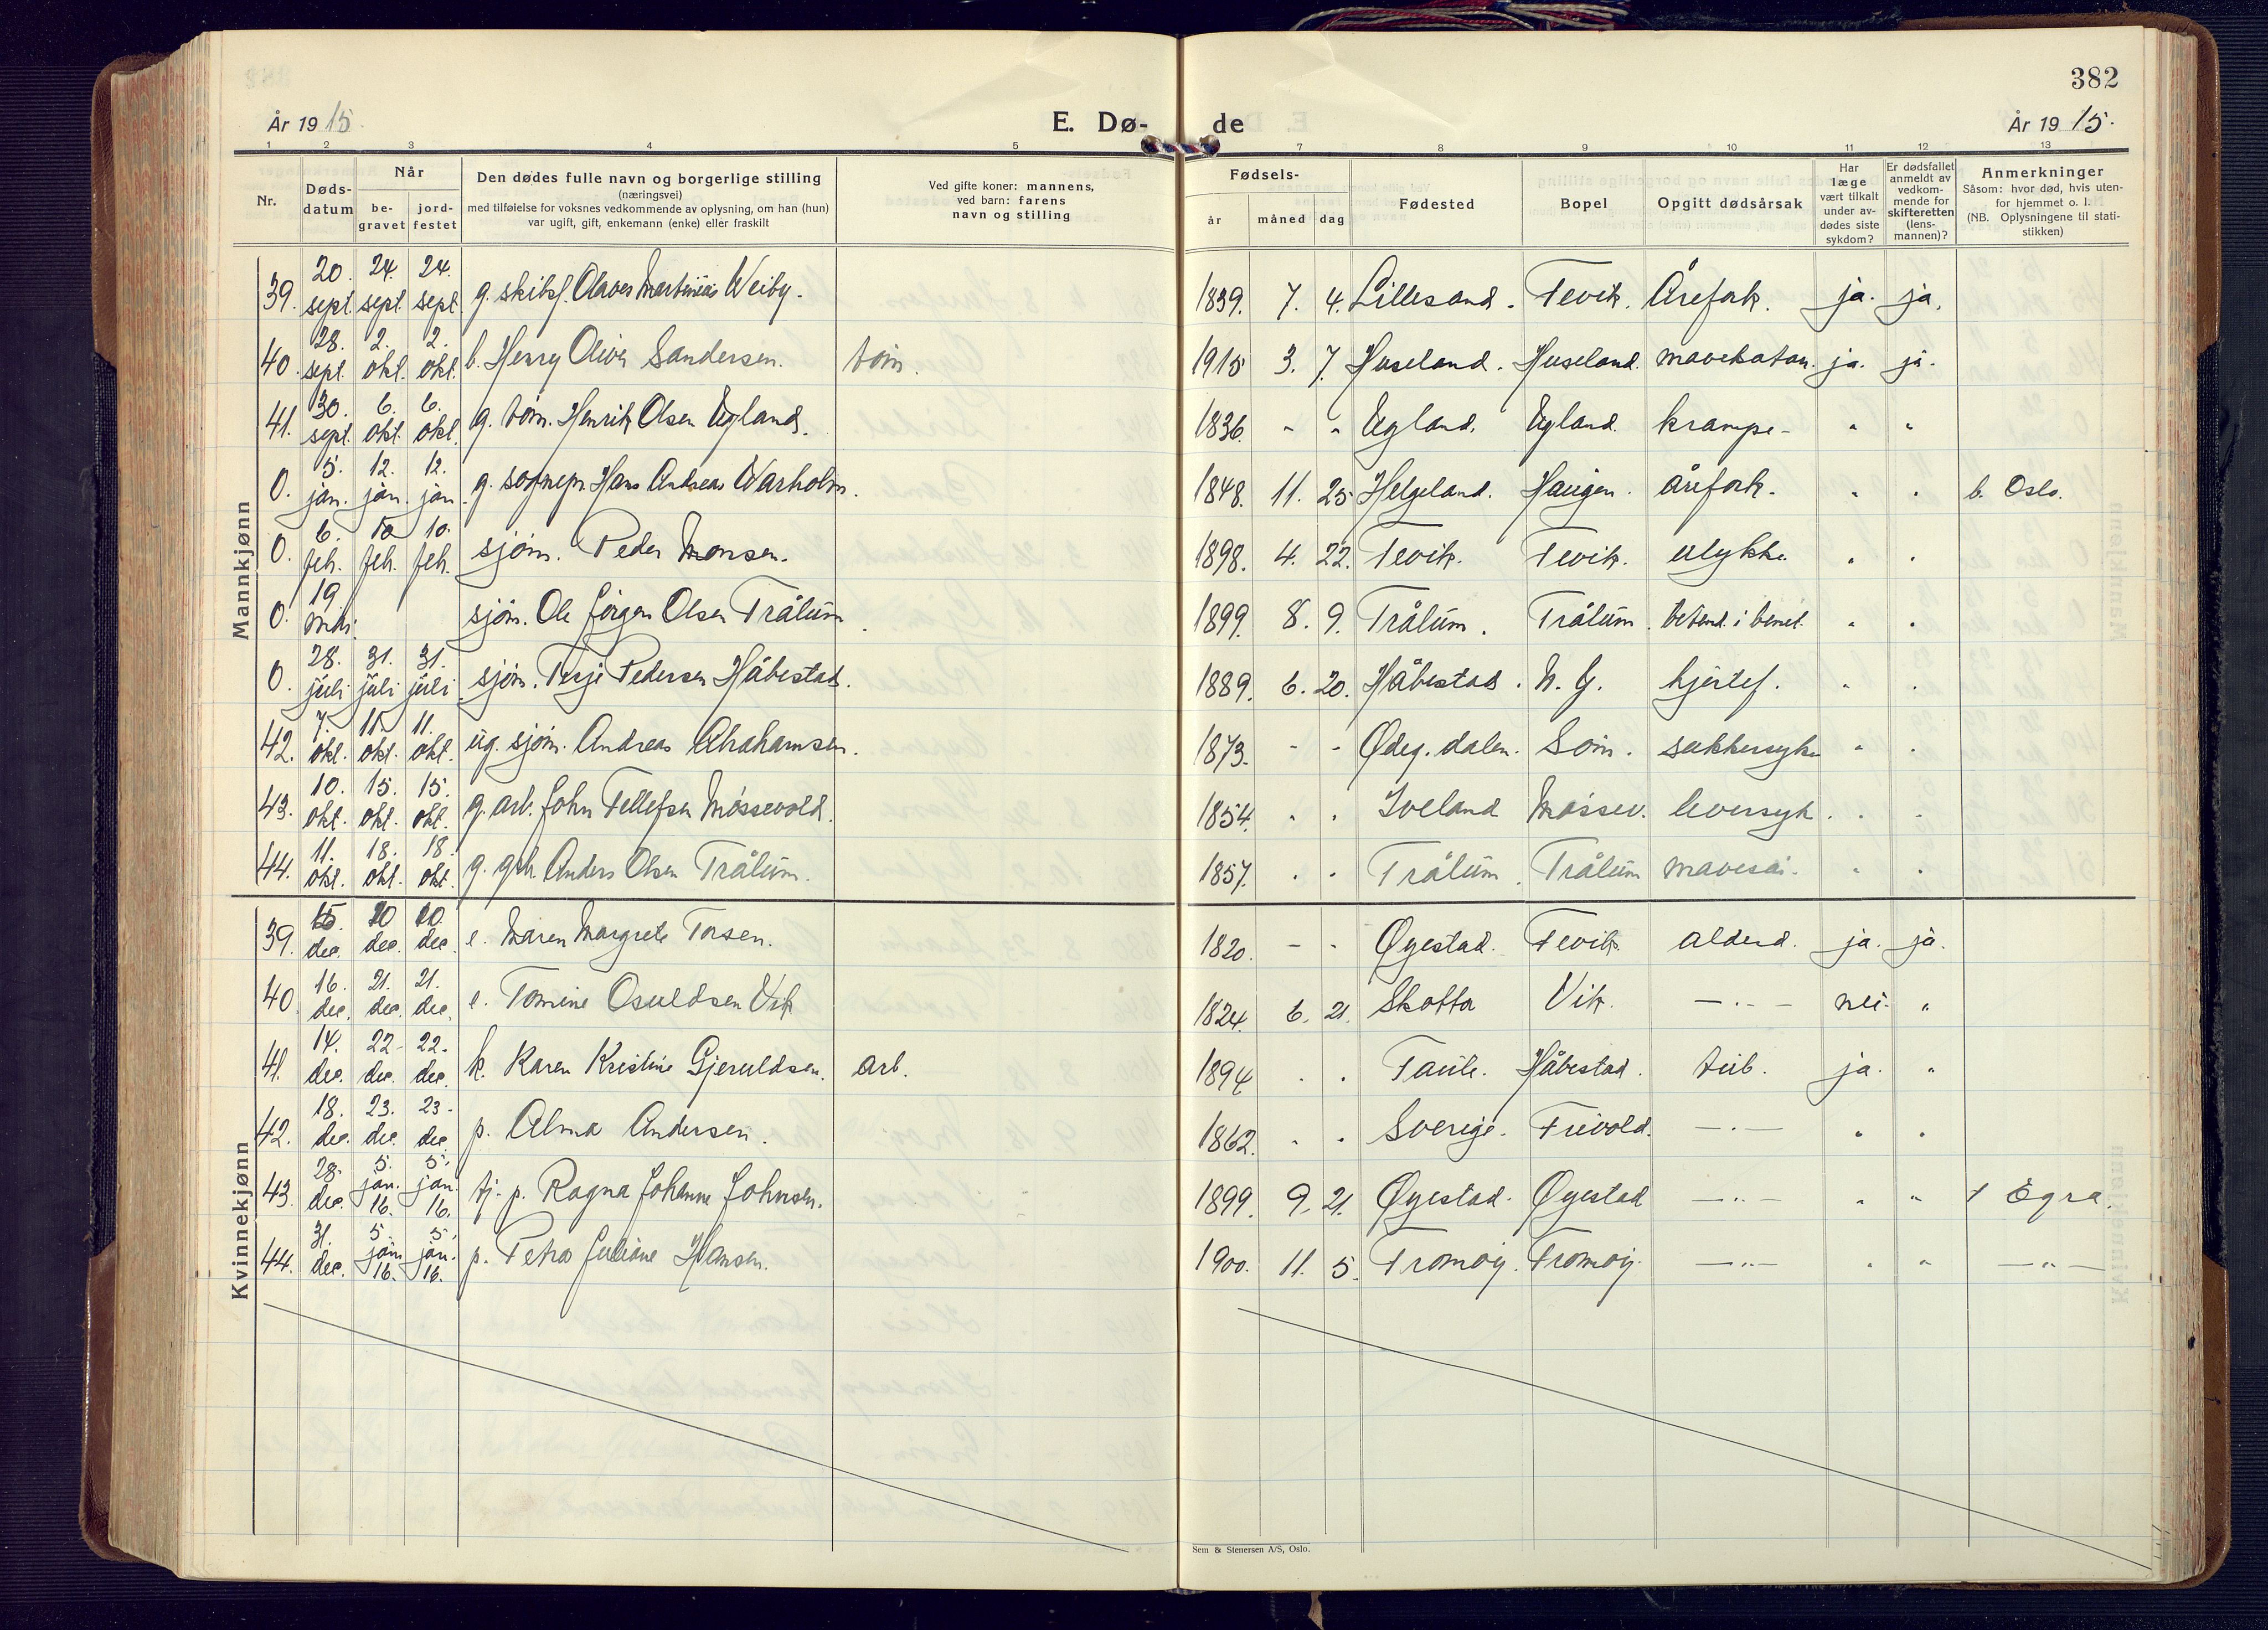 382
År 1915.
E. Dø-
de
År 1915.
1 2 3 4 5 7 8 9 10 11 12 13
Nr.
Døds-
datum
Når
be-
gravet
jord-
festet
Den dødes fulle navn og borgerlige stilling
(næringsvei)
med tilføielse for voksnes vedkommende av oplysning, om han (hun)
var ugift, gift, enkemann (enke) eller fraskilt
Ved gifte koner: mannens,
ved barn: farens
navn og stilling
Fødsels-
år
måned
dag
Fødested
Bopel
Opgitt dødsårsak
Har
læge
vært tilkalt
under av-
dødes siste
sykdom?
Er dødsfallet
anmeldt av
vedkom-
mende for
skifteretten
(lens-
mannen)?
Anmerkninger
Såsom: hvor død, hvis uten-
for hjemmet o. l.
(NB. Oplysningene til stati-
stikken)
Mannkjønn
39. 20. sept. 24. sept. 24. sept. g. skibsf. Olaves Martinius Weiby. 1839. 7. 4. Lillesand. Fevik. Årefork. ja. ja.
40. 28. sept. 2. okt. 2. okt. b. Henry Oliver Sandersen. tøm. 1915 3. 7. Huseland. Huseland. mavekatar. ja. ja.
41. 30. sept. 6. okt. 6. okt. g. tøm. Henrik Olsen Ugland. 1836. - - Ugland. Ugland. krampe - " "
0. 5. jan. 12. jan. 12. jan. g. sognepr. Hans Andreas Warholm. 1848. 11. 25 Helgeland. Haugen. årefork. " " b. Oslo.
0. 6. feb. 10 feb. 10. feb. sjøm. Peder Monsen. 1898. 4. 22. Fevik. Fevik. ulykke. " "
0. 19 mai. sjøm. Ole Jørgen Olsen Trålum. 1899. 8. 9. Trålum. Trålum. betend. i benet. " "
0. 28. juli 31. juli 31. juli sjøm. Terje Pedersen Håbestad. 1889. 6. 20. Håbestad. N. Y. hjertef. " "
42. 7. okt. 11. okt. 11. okt. ug. sjøm. Andreas Abrahamsen. 1873. - - Ødeg. dalen. Søm. sukkersyke " "
43. 10. okt. 15. okt. 15. okt. g. arb. John Tellefsen Møssevold. 1854. " " Iveland Møssev. leversyk. " "
44. 11. okt. 18. okt. 18. okt. g. gbr. Anders Olsen Trålum. 1857. " " Trålum. Trålum mavesår. " "
Kvinnekjønn
39. 15. dec. 20 dec. 20. dec e. Maren Margrete Torsen. 1820. - - Øyestad. Fevik. alderd. ja. ja.
40. 16. dec. 21. dec. 21. dec. e. Tomine Osuldsen Vik 1824. 6. 21. Skotta Vik. —"— nei. "
41. 14. dec. 22. dec. 22. dec. k. Karen Kristine Gjeruldsen. arb. 1894 " " Taule. Håbestad. tub. ja. "
42. 18. dec. 23. dec. 23. dec. p. Alma Andersen. 1862. " " Sverige. Frivold. —"— " "
43. 28. dec. 5. jan. 16. 5. jan. 16. tj. p. Ragna Johanne Johnsen. 1899. 9. 21. Øyestad. Øyestad —"— " " † Egra.
44. 31. dec. 5. jan. 16. 5. jan. 16. p. Petra Juliane Hansen. 1900. 11. 5. Tromøy. Tromøy. —"— " " —"—
Sem & Stenersen A/S, Oslo.